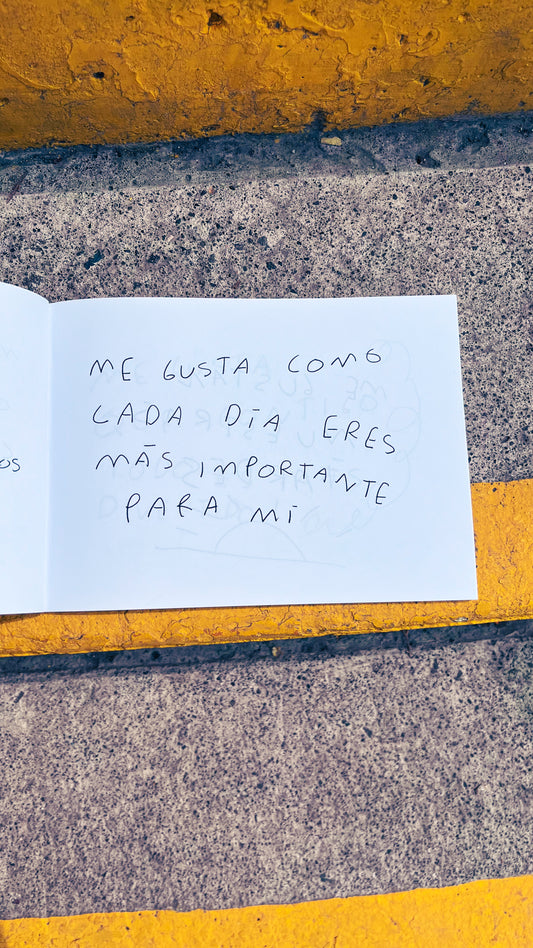 ME GUSTA COMO
CADA DÍA ERES
MÁS IMPORTANTE
PARA MÍ
os